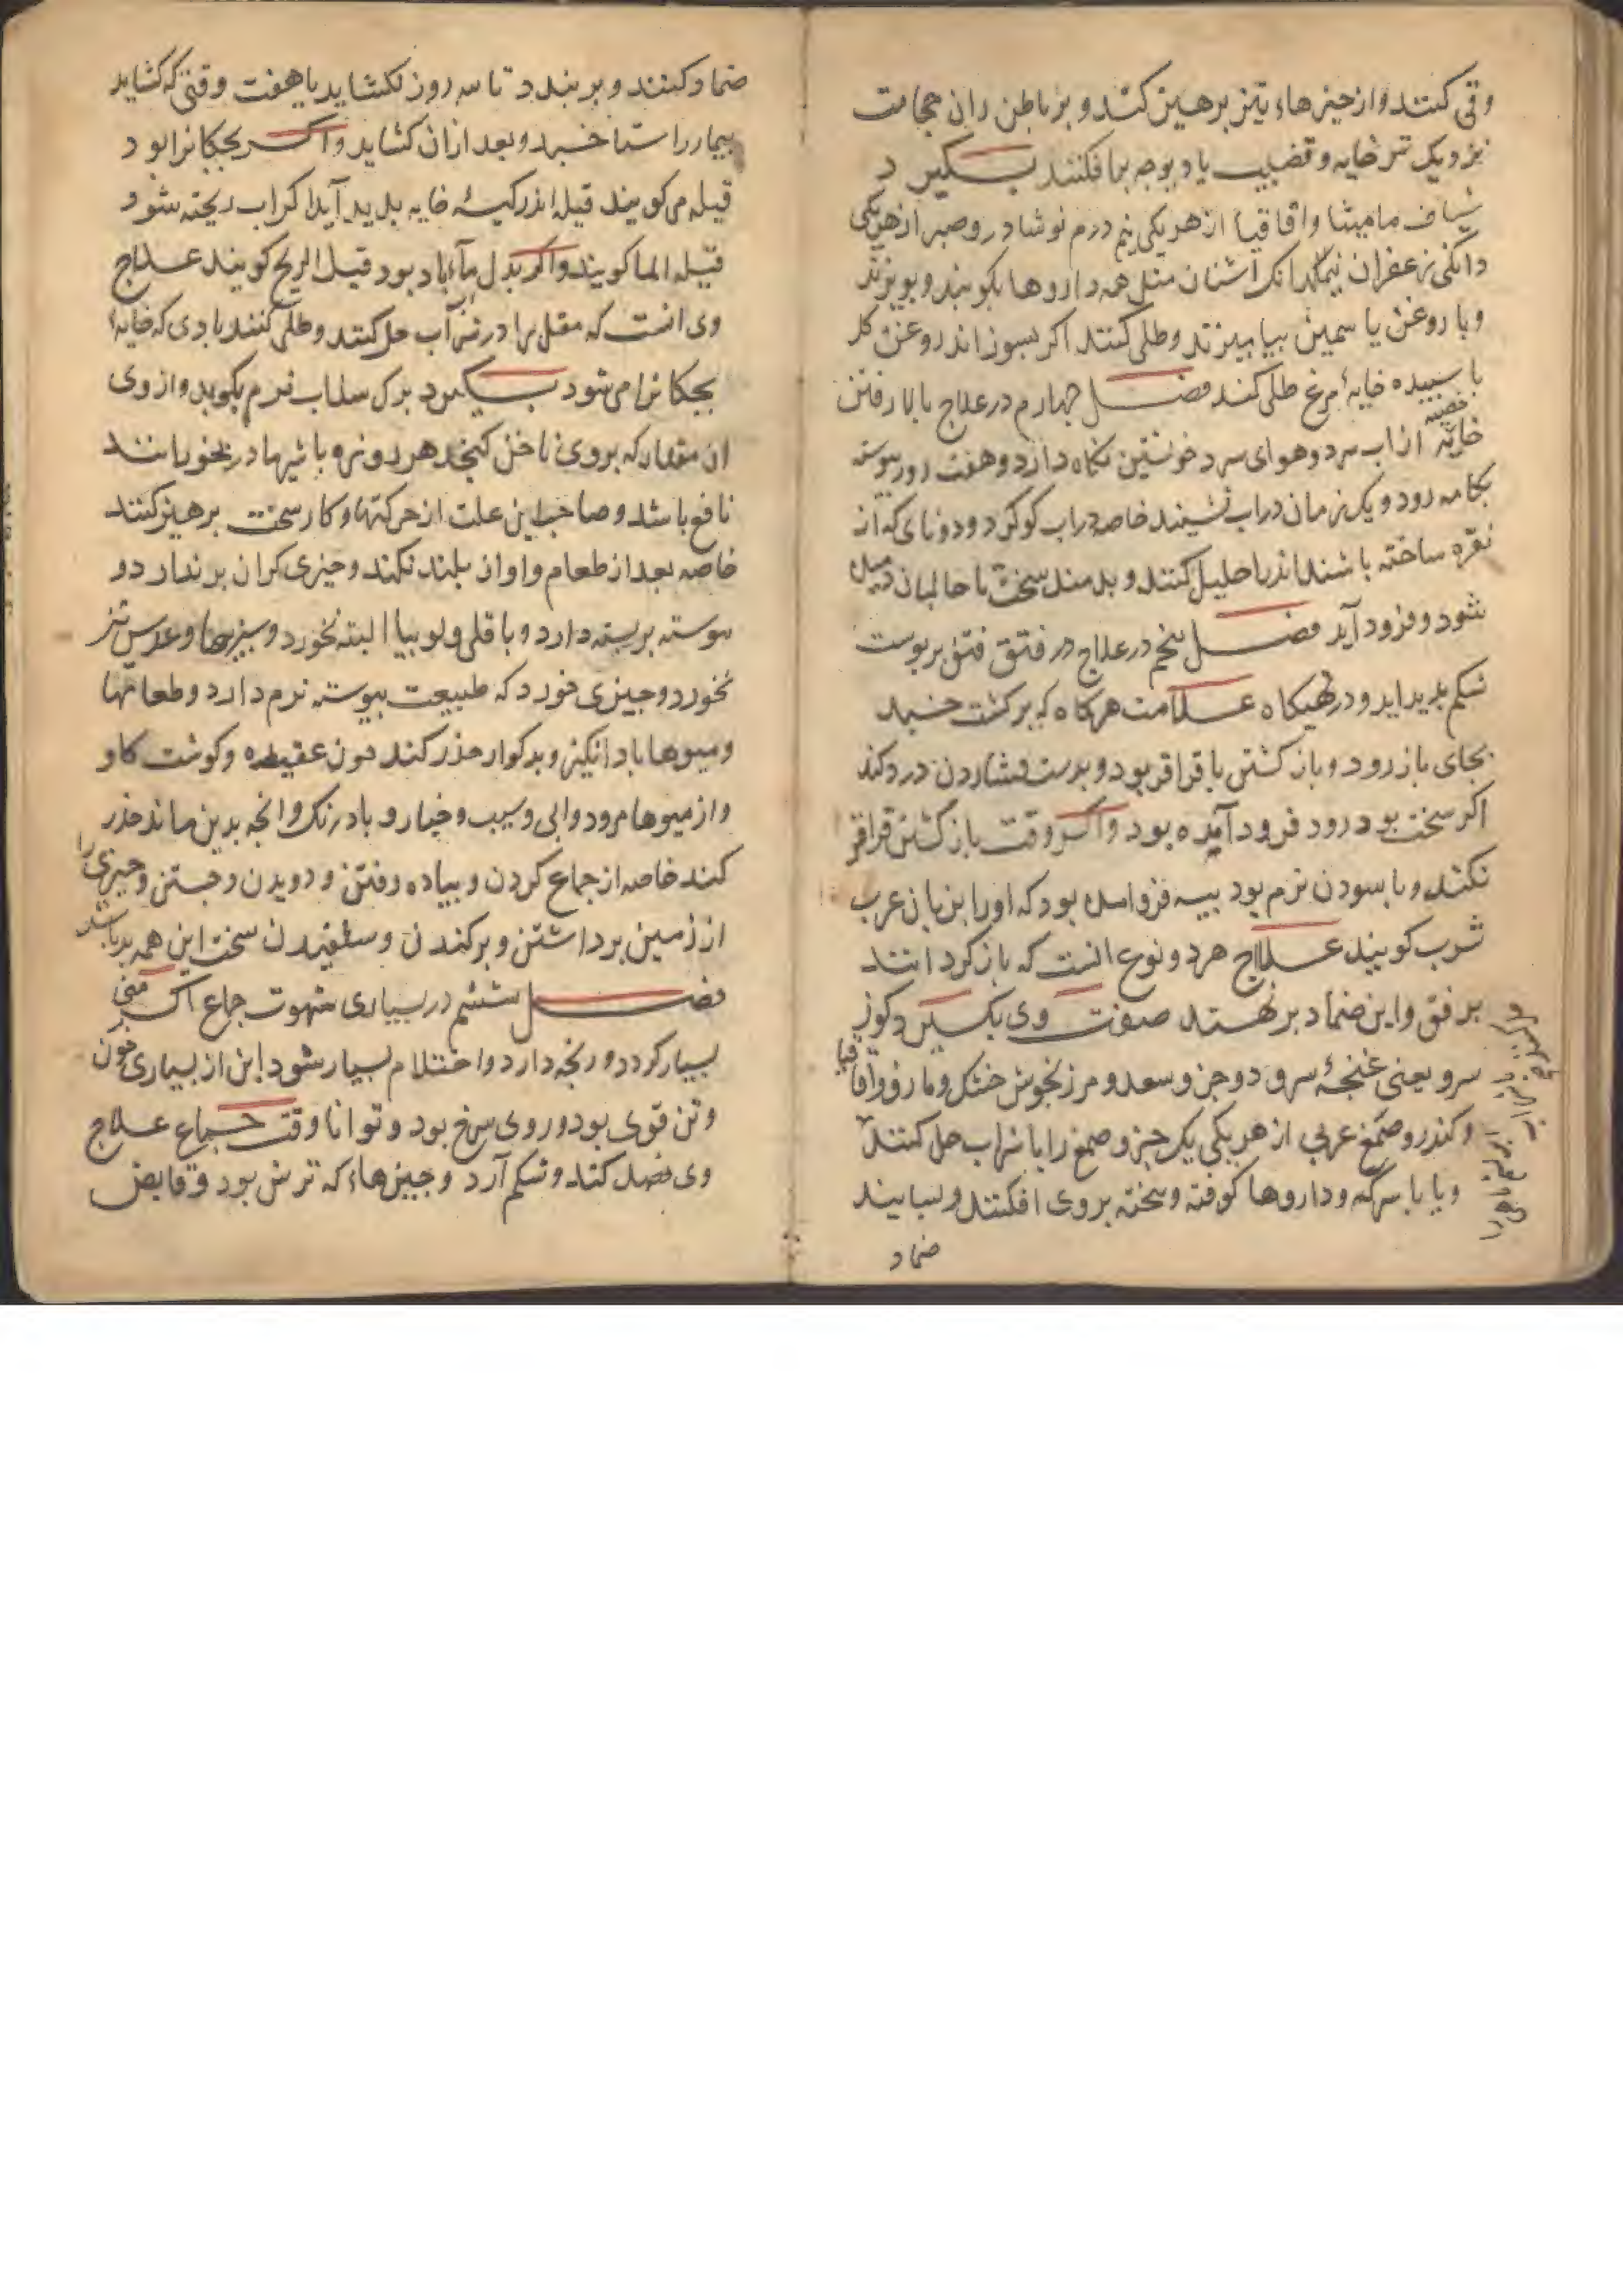 وقی کنند و از چیزهاء تیز برهیز کند و بر باطن ران حجامت
نزدیک تر خایه و قضیب یا دیوجه برافکنند بکیرد
شیاف مامیثا و اقاقیا از هر یکی نیم درم نوشادر و صبر از هر یکی
دانکی زعفران نیمدانک اشنان مثل همه داروها بکوبند و ببیزند
و با روغن یاسمین بیامیزند و طلی کنند اکر بسوزاند روغن کل
با سبیده خایهٔ مرغ طلی کنند فصل چهارم در علاج بالا رفتن
خایه خصیه از اب سرد و هوای سرد خویشتن نکاه دارد و هفت روز بیوسته
بکرمابه رود و یک زمان در اب نشیند خاصه در اب کوکرد و نای که از
نقره ساخته باشند اندر احلیل کنند و بدمند سخت تا حالبان دمیده
شود و فرود آید فصل پنجم در علاج در فتق فتق بر بوست
شکم بدید اید و در تهیکاه علامت هرکاه که بر کشت خسبد
بجای باز رود و باز کشتن با قراقر بود و بدست فشاردن درد کند
اکر سخت بود رود فرود آمده بود و اکر وقت باز کشتن قراقر
نکند و بابسودن نرم بود بیه فرو امده بود که او را بزبان عرب
ثرب کویند علاج هر دو نوع انست که باز کردانند
برفق و این ضماد برنهند صفت وی بکیرد کوز
سرو یعنی غنجهٔ سرو دو جزو سعد و مرزنجوش خشک و مازو و اقاقیا
و کندر و صمغ عربی از هر یکی یک جزو صمغ را با شراب حل کنند
و یا با سرکه و داروها کوفته و بیخته بروی افکنند و بسایند
ضماد
ضماد کنند و بربندد تا سه روز نکشاید یا هفت وقتی که کشاید
بیمار را ستان خسبد و بعد از ان کشاید و اکر بجکانرا بود
قیله می کویند قیله اندر کیسهٔ خایه بدید آید اکر اب ریخته شود
قیله الما کویند و اکر بدل ماء باد بود قیله الریح کویند علاج
وی انست که مقل را در آب حل کنند و طلی کنند بادی که خایهٔ
بجکانرا می شود بکیرد برک سداب نرم بکوبد و از وی
ان مقدار که بروی ناخن کنجد هر روز با شیر مادر بخورانند
نافع باشد و صاحب این علت از حرکتها و کار سخت برهیز کنند
خاصه بعد از طعام و اواز بلند نکند و چیزی کران بر ندارد و
بیوسته بر بسته دارد و باقلی و لوبیا البته نخورد و سبزیها و عدس نیز
نخورد و چیزی خورد که طبیعت بیوسته نرم دارد و طعامها
و میوها باد انکیز و بدکوار حذر کند چون عقیده و کوشت کاو
و از میوها مرود و ابی و سیب و خیار و بادرنک و انچه بدین ماند حذر
کند خاصه از جماع کردن و بیاده رفتن و دویدن و جستن و چیزی را
از زمین برداشتن و برکندن و سخت این همه بد باشد
فصل ششم در بسیاری شهوت جماع اکر منی
بسیار کردد و رنجه دارد و احتلام بسیار شود این از بسیاری خون
و تن قوی بود و روی سرخ بود و توانا وقت جماع علاج
وی فصد کند و شکم آرد و چیزهاء که ترش بود و قابض